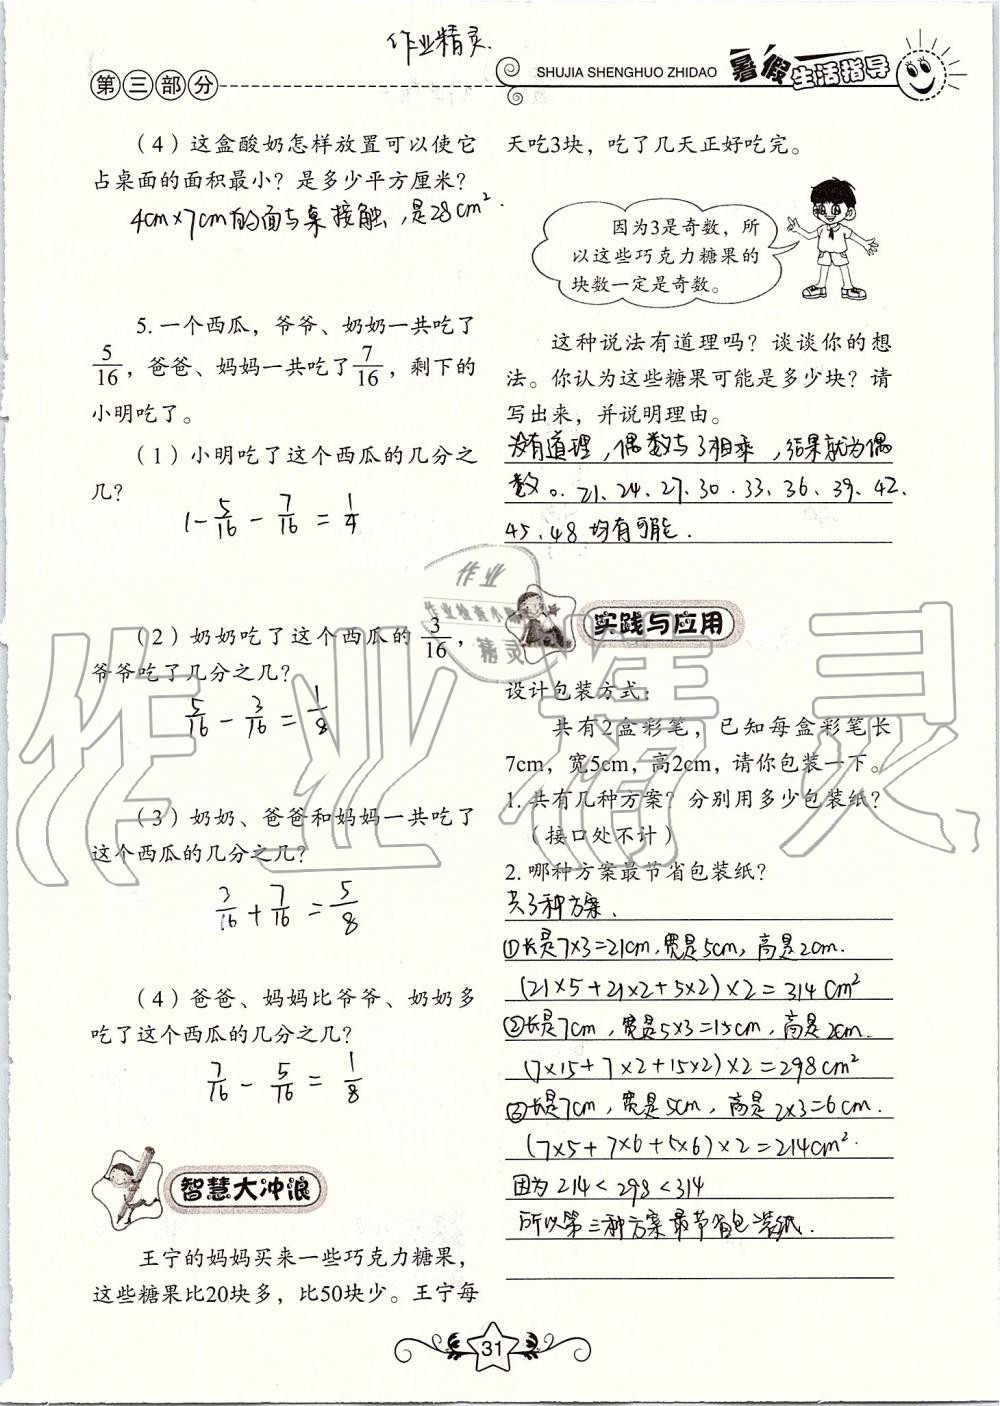 作业精灵.
第三部分
SHUJIA SHENGHUO ZHIDAO
暑假生活指导
（4）这盒酸奶怎样放置可以使它
占桌面的面积最小？是多少平方厘米？
4cm×7cm的面与桌接触,是28cm².
5. 一个西瓜，爷爷、奶奶一共吃了
5/16，爸爸、妈妈一共吃了7/16，剩下的
小明吃了。
（1）小明吃了这个西瓜的几分之
几？
1-5/16-7/16=1/4
（2）奶奶吃了这个西瓜的3/16，
爷爷吃了几分之几？
5/16-3/16=1/8
（3）奶奶、爸爸和妈妈一共吃了
这个西瓜的几分之几？
3/16+7/16=5/8
（4）爸爸、妈妈比爷爷、奶奶多
吃了这个西瓜的几分之几？
7/16-5/16=1/8
智慧大冲浪
王宁的妈妈买来一些巧克力糖果，
这些糖果比20块多，比50块少。王宁每
天吃3块，吃了几天正好吃完。
因为3是奇数，所
以这些巧克力糖果的
块数一定是奇数。
这种说法有道理吗？谈谈你的想
法。你认为这些糖果可能是多少块？请
写出来，并说明理由。
没有道理,偶数与3相乘,结果就为偶
数。21、24、27、30、33、36、39、42、
45、48均有可能.
作业
作业检查小
精灵
实践与应用
设计包装方式：
共有2盒彩笔，已知每盒彩笔长
7cm，宽5cm，高2cm，请你包装一下。
1. 共有几种方案？分别用多少包装纸？
（接口处不计）
2. 哪种方案最节省包装纸？
共3种方案.
①长是7×3=21cm,宽是5cm,高是2cm.
(21×5+21×2+5×2)×2=314cm²
②长是7cm,宽是5×3=15cm,高是2cm.
(7×15+7×2+15×2)×2=298cm²
③长是7cm,宽是5cm,高是2×3=6cm.
(7×5+7×6+5×6)×2=214cm².
因为214<298<314
所以第三种方案最节省包装纸.
作业精灵
31